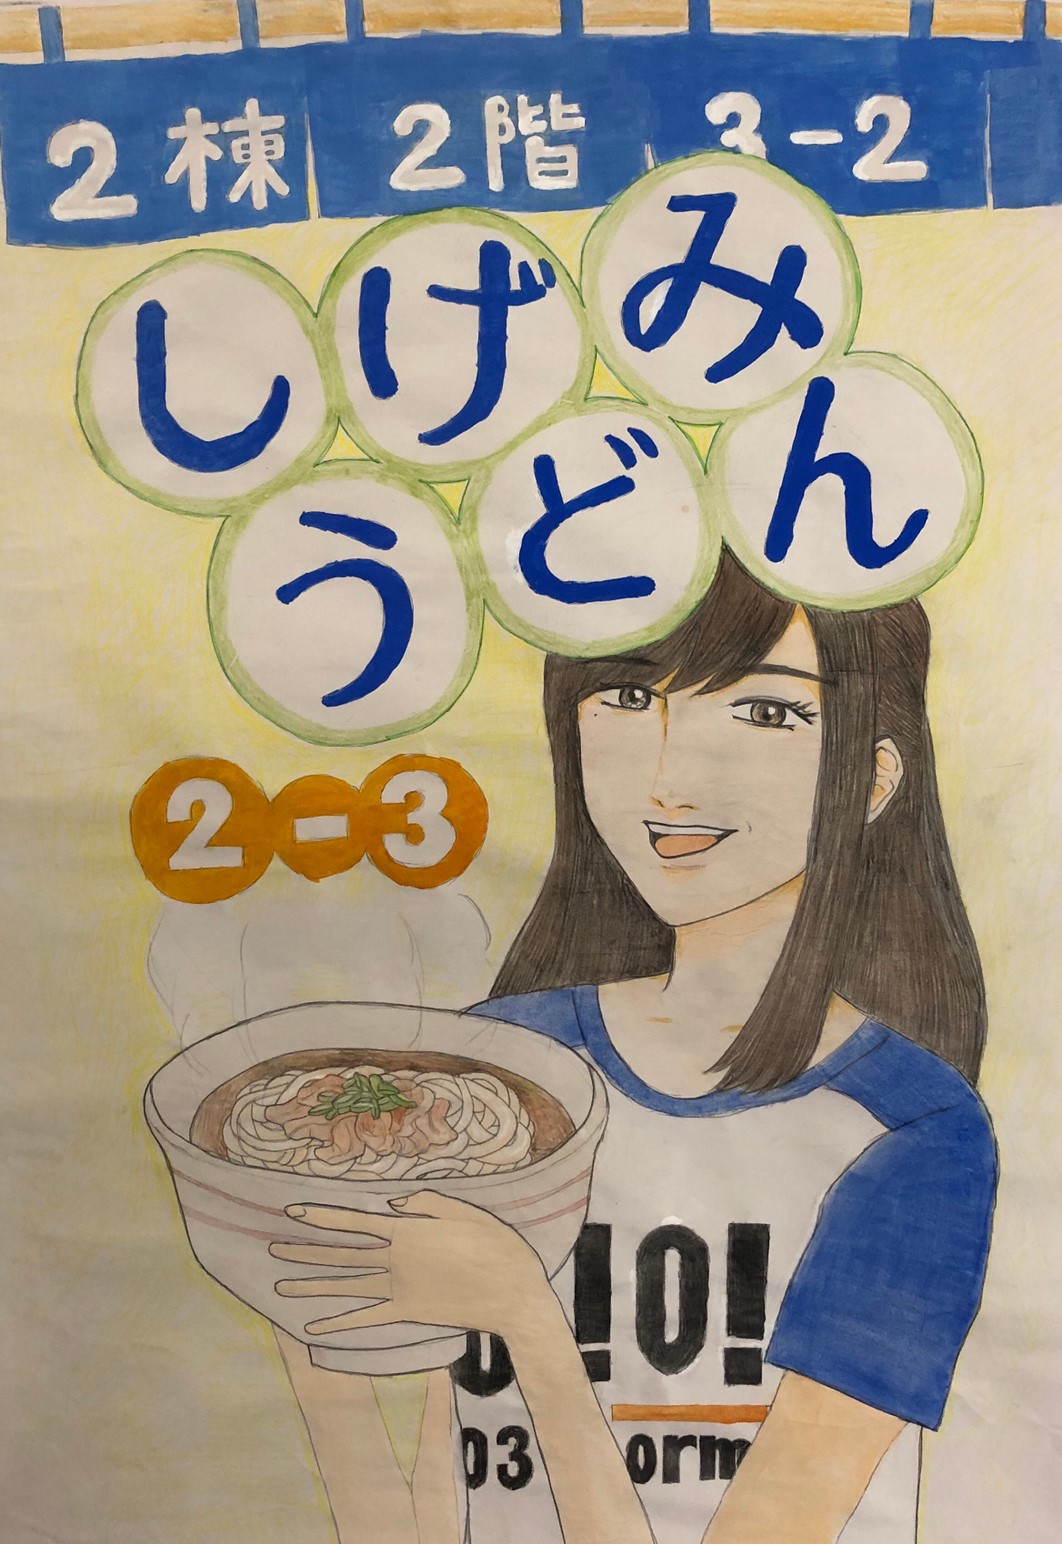 2棟 2階 3-2
しげみん
うどん
2-3
!0!
03 orm